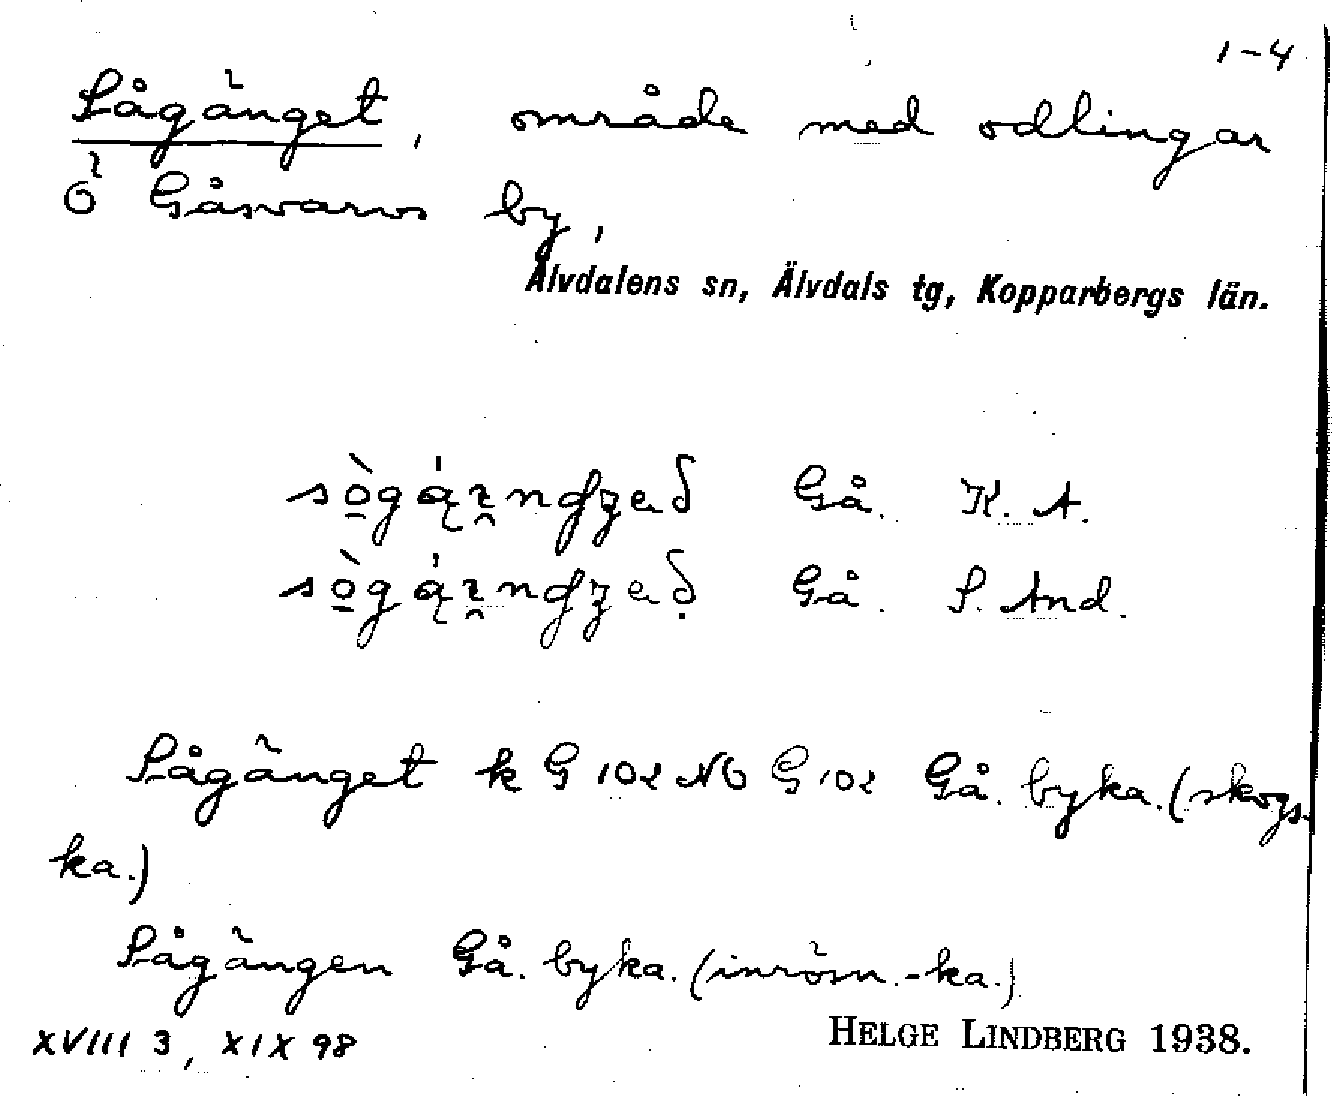 1-4
Sågänget, område med odlingar
Ö Gåsvarvs by,
Älvdalens sn, Älvdals tg, Kopparbergs län.
Gå. K. A.
Gå. S. And.
Sågänget k G 102 NO G 102 Gå. byka. (skogs-
ka.)
Sågängen Gå. byka. (inrösn.-ka.)
XVIII 3, XIX 98
HELGE LINDBERG 1938.